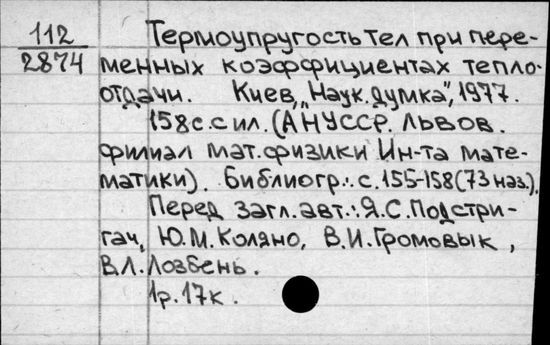 112
2874
Термоупругость тел при пере-
менных коэффициентах тепло-
отдачи. Киев, „Наук. думка", 1977.
158 с. с ил. (АН УССР. Львов.
филиал мат. физики Ин-та мате-
матики). Библиогр.: с. 155-158 (73 наз.).
Перед загл. авт.: Я.С. Подстри-
гач, Ю.М. Коляно, В.И. Громовык,
В.Л. Лозбень.
1р. 17к.